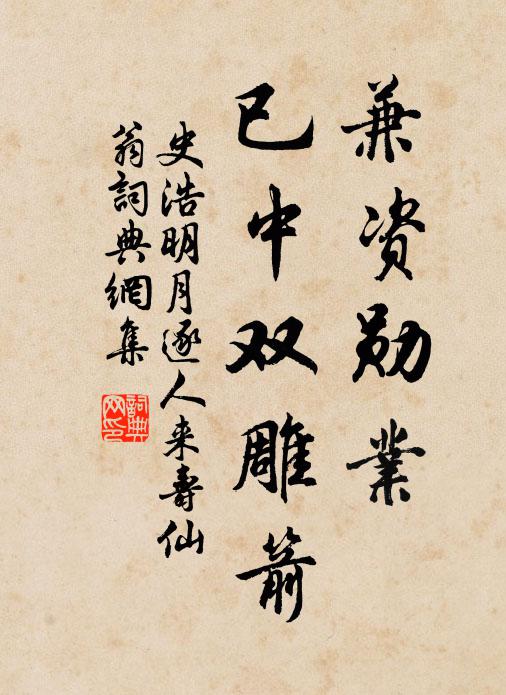 兼资勋業
已中双雕箭
史浩明月逐人来壽仙
翁詞典網集
詞典网印